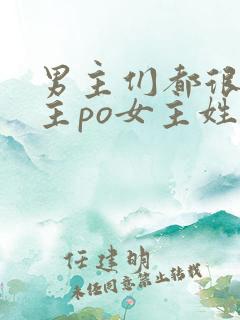 男主们都很
主po女主姓
任建明
未经同意禁止转载